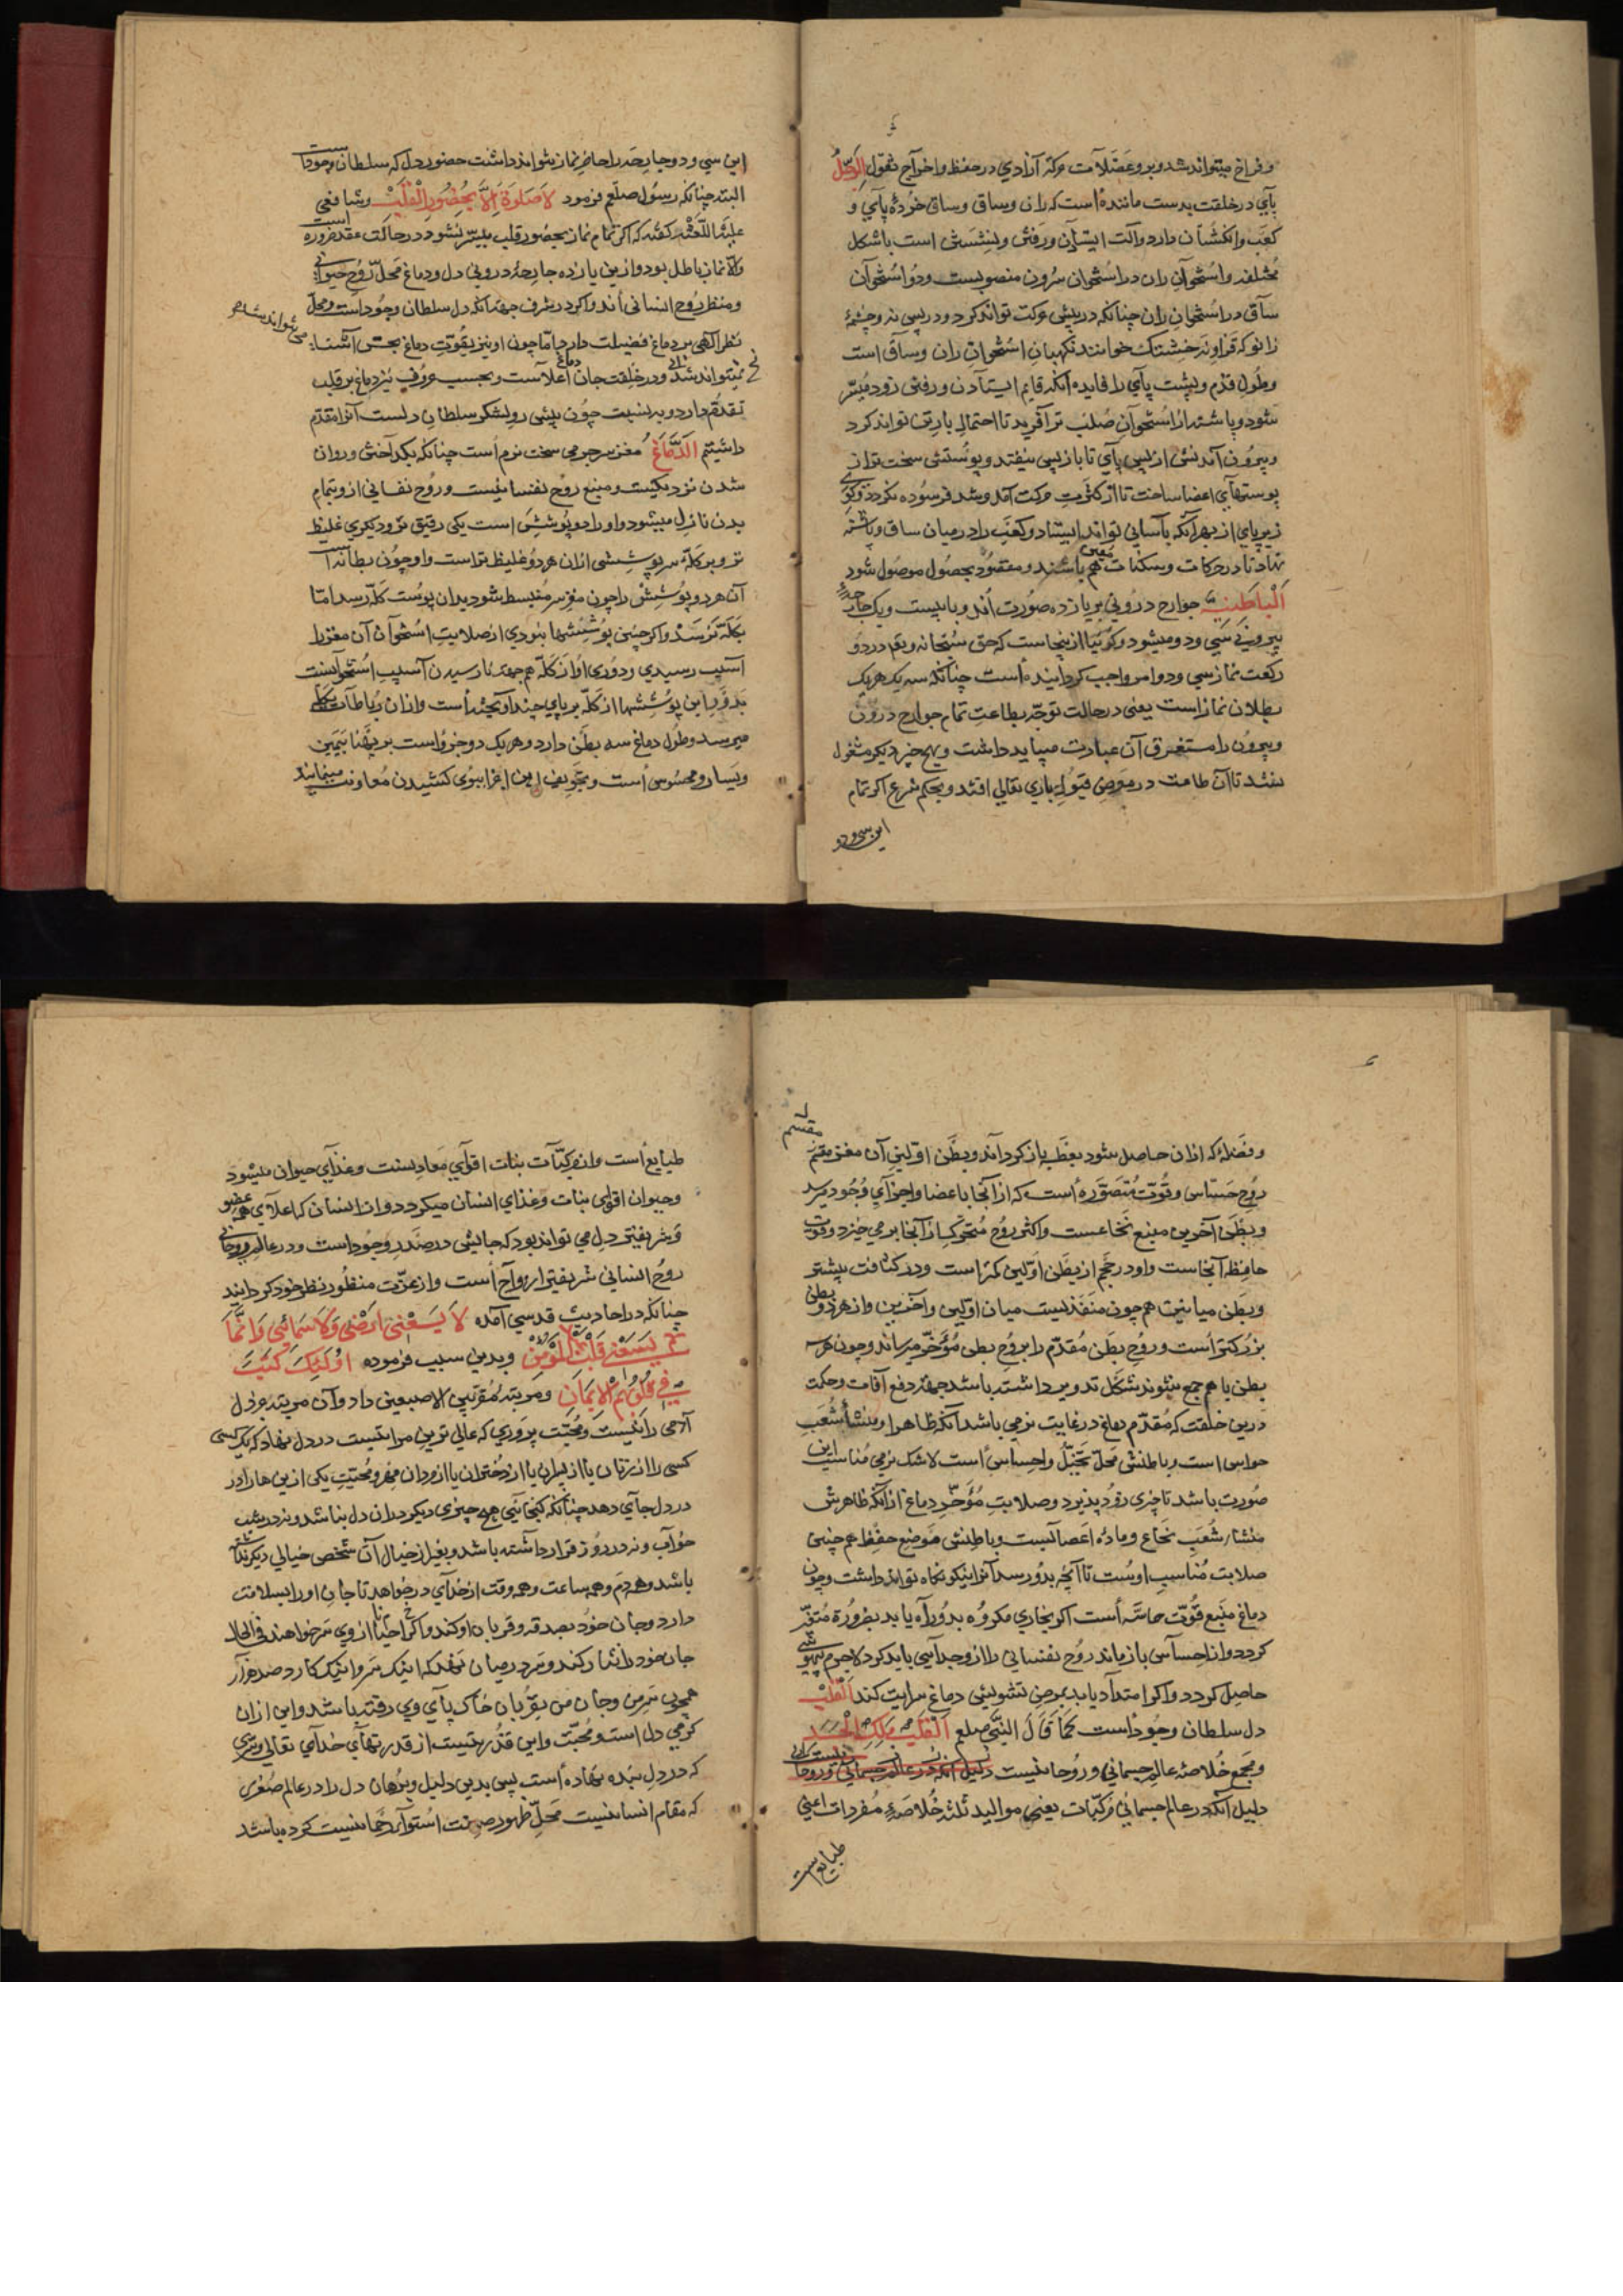 و فراخ میتواند شد و برو عضلات حرکة آزادی در حفظ و اخراج ثفول الرجل
پای در خلقت بدست ماننده است که ران و ساق و ساق خرده پای و
کعب و انکشتان دارد و آلت ایستادن و رفتن و نشستن است باشکال
مختلفه و استخوان ران در استخوان سرون منصوبست و دو استخوان
ساق در استخوان ران چنانکه در پیش حرکت تواند کرد و در پس نه و چشمۀ
زانو که قراونه خشتک خوانند نکهبان استخوان ران و ساق است
و طول قدم و پشت پای را فایده آنکه قایم ایستادن و رفتن زود میسر
شود و پاشنه از استخوان صلب تر آفرید تا احتمال بار تن تواند کرد
و بیرون آمدنش از پس پای تا باز پس نیفتد و پوستش سخت تر از
پوستهای اعضا ساخت تا از کثرت حرکت آمد و شد فرسوده نکردد و کوی
زیر پای از بهر آنکه بآسانی تواند ایستاد و کعب را در میان ساق و پاشنه
نهاد تا در حرکات و سکنات معین هم باشند و مقصود بحصول موصول شود
الباطنیه جوارح درونی بر یازده صورت اند و با بیست و یک جارحۀ
بیرونی سی و دو میشود و کوئیا از ینجاست که حق سبحانه و تعم در دو
رکعت نماز سی و دو امر واجب کردانیده است چنانکه سه یک هر یک
بطلان نماز است یعنی در حالت توجه بطاعت تمام جوارح درون
و بیرون را مستغرق آن عبادت میباید داشت و بهیچ چیز دیکر مشغول
نشد تا آن طاعت در معرض قبول باری تعالی افتد و بحکم شرع اکر تمام
این سی و دو
این سی و دو جارحه را حاضر نماز نتواند داشت حضور دل که سلطان وجود است
البته چنانکه رسول صلعم فرمود لا صلوة الا بحضور القلب و شافعی
علیه اللعنه کفته که اکر تمام نماز بحضور قلب میسر نشود در حالت عقد ضروره است
والا نماز باطل بود و ازین یازده جارحۀ درونی دل و دماغ محل روح حیوانی
و منظر روح انسانی اند و اکر در شرف جهة آنکه دل سلطان وجود است و محل
نظر الهی بر دماغ فضیلت دارد اما چون او نیز بقوت دماغ بحس آشنا
نمیتواند شد و در خلقت جان دماغ اعلا است و بحسب عروف نیز دماغ بر قلب
تقدم دارد و به نسبت چون پیش رو لشکر سلطان دلست آنرا مقدم
داشتیم الدماغ مغز سر جرمی سخت نرم است چنانکه بکداختن و روان
شدن نزدیکست و منبع روح نفسانیست و روح نفسانی ازو بتمام
بدن نازل میشود و او را دو پوشش است یکی رقیق تر و دیکری غلیظ
تر و بر کله سر پوششی از آن هر دو غلیظ تر است و او چون بطانه است
آن هر دو پوشش را چون مغز سر منبسط شود بدان پوست کله رسد اما
بکله نرسد و اکر چنین پوششها نبودی از صلابت استخوان آن مغز را
آسیب رسیدی و دوری او از کله هم جهة نارسیدن آسیب استخوانست
بدو و این پوششها از کله بر پای چند آویخته است و از آن رباطات بکله
میرسد و طول دماغ سه بطن دارد و هر یک دو جزو است بر پهنا بیمین
و یسار و محسوس است و تجویف این اجزا ببوی کشیدن معاونت مینماید
می تواند شد م
مقسم
و فضله که از آن حاصل شود بعطسه باز کرداند و بطن اولین آن مغز مقسم
روح حساس و قوت متصوره است که از آنجا باعضا و اجزای وجود میرسد
و بطن آخرین منبع نخاعست و اکثر روح متحرک از آنجا بر می خیزد و قوت
حافظه آنجاست و او در حجم از بطن اولین کمتر است و در کثافت بیشتر
و بطن میانین هم چون منفذیست میان اولین و آخرین و از هر دو بطن
بزرکتر است و روح بطن مقدم را بروح بطن مؤخر میرساند و چون هر سه
بطن با هم جمع شوند شکل تدویر داشته باشد جهة دفع آفات و حکمت
درین خلقت که مقدم دماغ در غایت نرمی باشد آنکه ظاهر او منشأ شعب
حواس است و باطنش محل تخیل و احساس است لاشک نرمی مناسب این
صورت باشد تا چیزی زود پذیرد و صلابت مؤخر دماغ از آنکه ظاهرش
منشاء شعب نخاع و مادۀ اعصابست و باطنش موضع حفظ هم چنین
صلابت مناسب اوست تا آنچه بدو رسد آنرا نیکو نکاه تواند داشت و چون
دماغ منبع قوت حاسه است اکر بخاری مکروه بدو راه یابد بضرورة متغیر
کردد و از احساس باز ماند روح نفسانی را ازو جدایی باید کرد لاجرم بیهوشی
حاصل کردد و اکر امتداد یابد بمرض تشویش دماغ سرایت کند القلب
دل سلطان وجود است کما قال النبی صلعم القلب ملک الجسد
و مجمع خلاصۀ عالم جسمانی و روحانیست دلیل آنکه در عالم جسمانی و روحانی
دلیل آنکه در عالم جسمانی مرکبات یعنی موالید ثلثه خلاصۀ مفردات اعنی
طبایع است
طبایع است و از مرکبات نبات اقوای معادنست و غذای حیوان میشود
و حیوان اقوای نبات و غذای انسان میکردد و از انسان که اعلای همه عضو
شریفتر دل می تواند بود که جایش در صدر وجود است و در عالم روحانی
روح انسانی شریفتر ارواح است و از عزت منظور نظر خود کردانید
چنانکه در احادیث قدسی آمده لا یسعنی ارضی و لا سمائی و انما
یسعنی قلب المؤمن و بدین سبب فرموده اولئک کتب
فی قلوبهم الایمان و مرتبه مقرتبی الاصبعین داد و آن مرتبه جز دل
آدمی را نیست و محبت پروری که عالی ترین مراتبست در دل نهاد که یک کسی
کسی را از زنان یا از پسران یا از دختران یا از مردان مهر و محبت یکی ازین ها را در
در دل جای دهد چنانکه کنجایی هیچ چیزی دیکر در آن دل نباشد و نه در شب
خواب و نه در روز قرار داشته باشد و بغیر از خیال آن شخص خیالی دیکر نداشته
باشد و هر دم و همه ساعت و همه وقت از خدای در خواهد تا جان او را بسلامت
دارد و جان خود بصدقه و قربان او کند و اکر احیانا از وی سر خواهند فی الحال
جان خود را نثار کند و سر در میان نهد که اینک سر و اینک کارد صد هزار
همچون سر من و جان من بقربان خاک پای وی رفته باشد و این از آن
کرمی دل است و محبت و این قدرتیست از قدرتهای خدای تعالی و سری
که در دل بنده نهاده است پس بدین دلیل و برهان دل را در عالم صغری
که مقام انسانیست محل ظهور صفت استوای رحمانیست کرده باشد